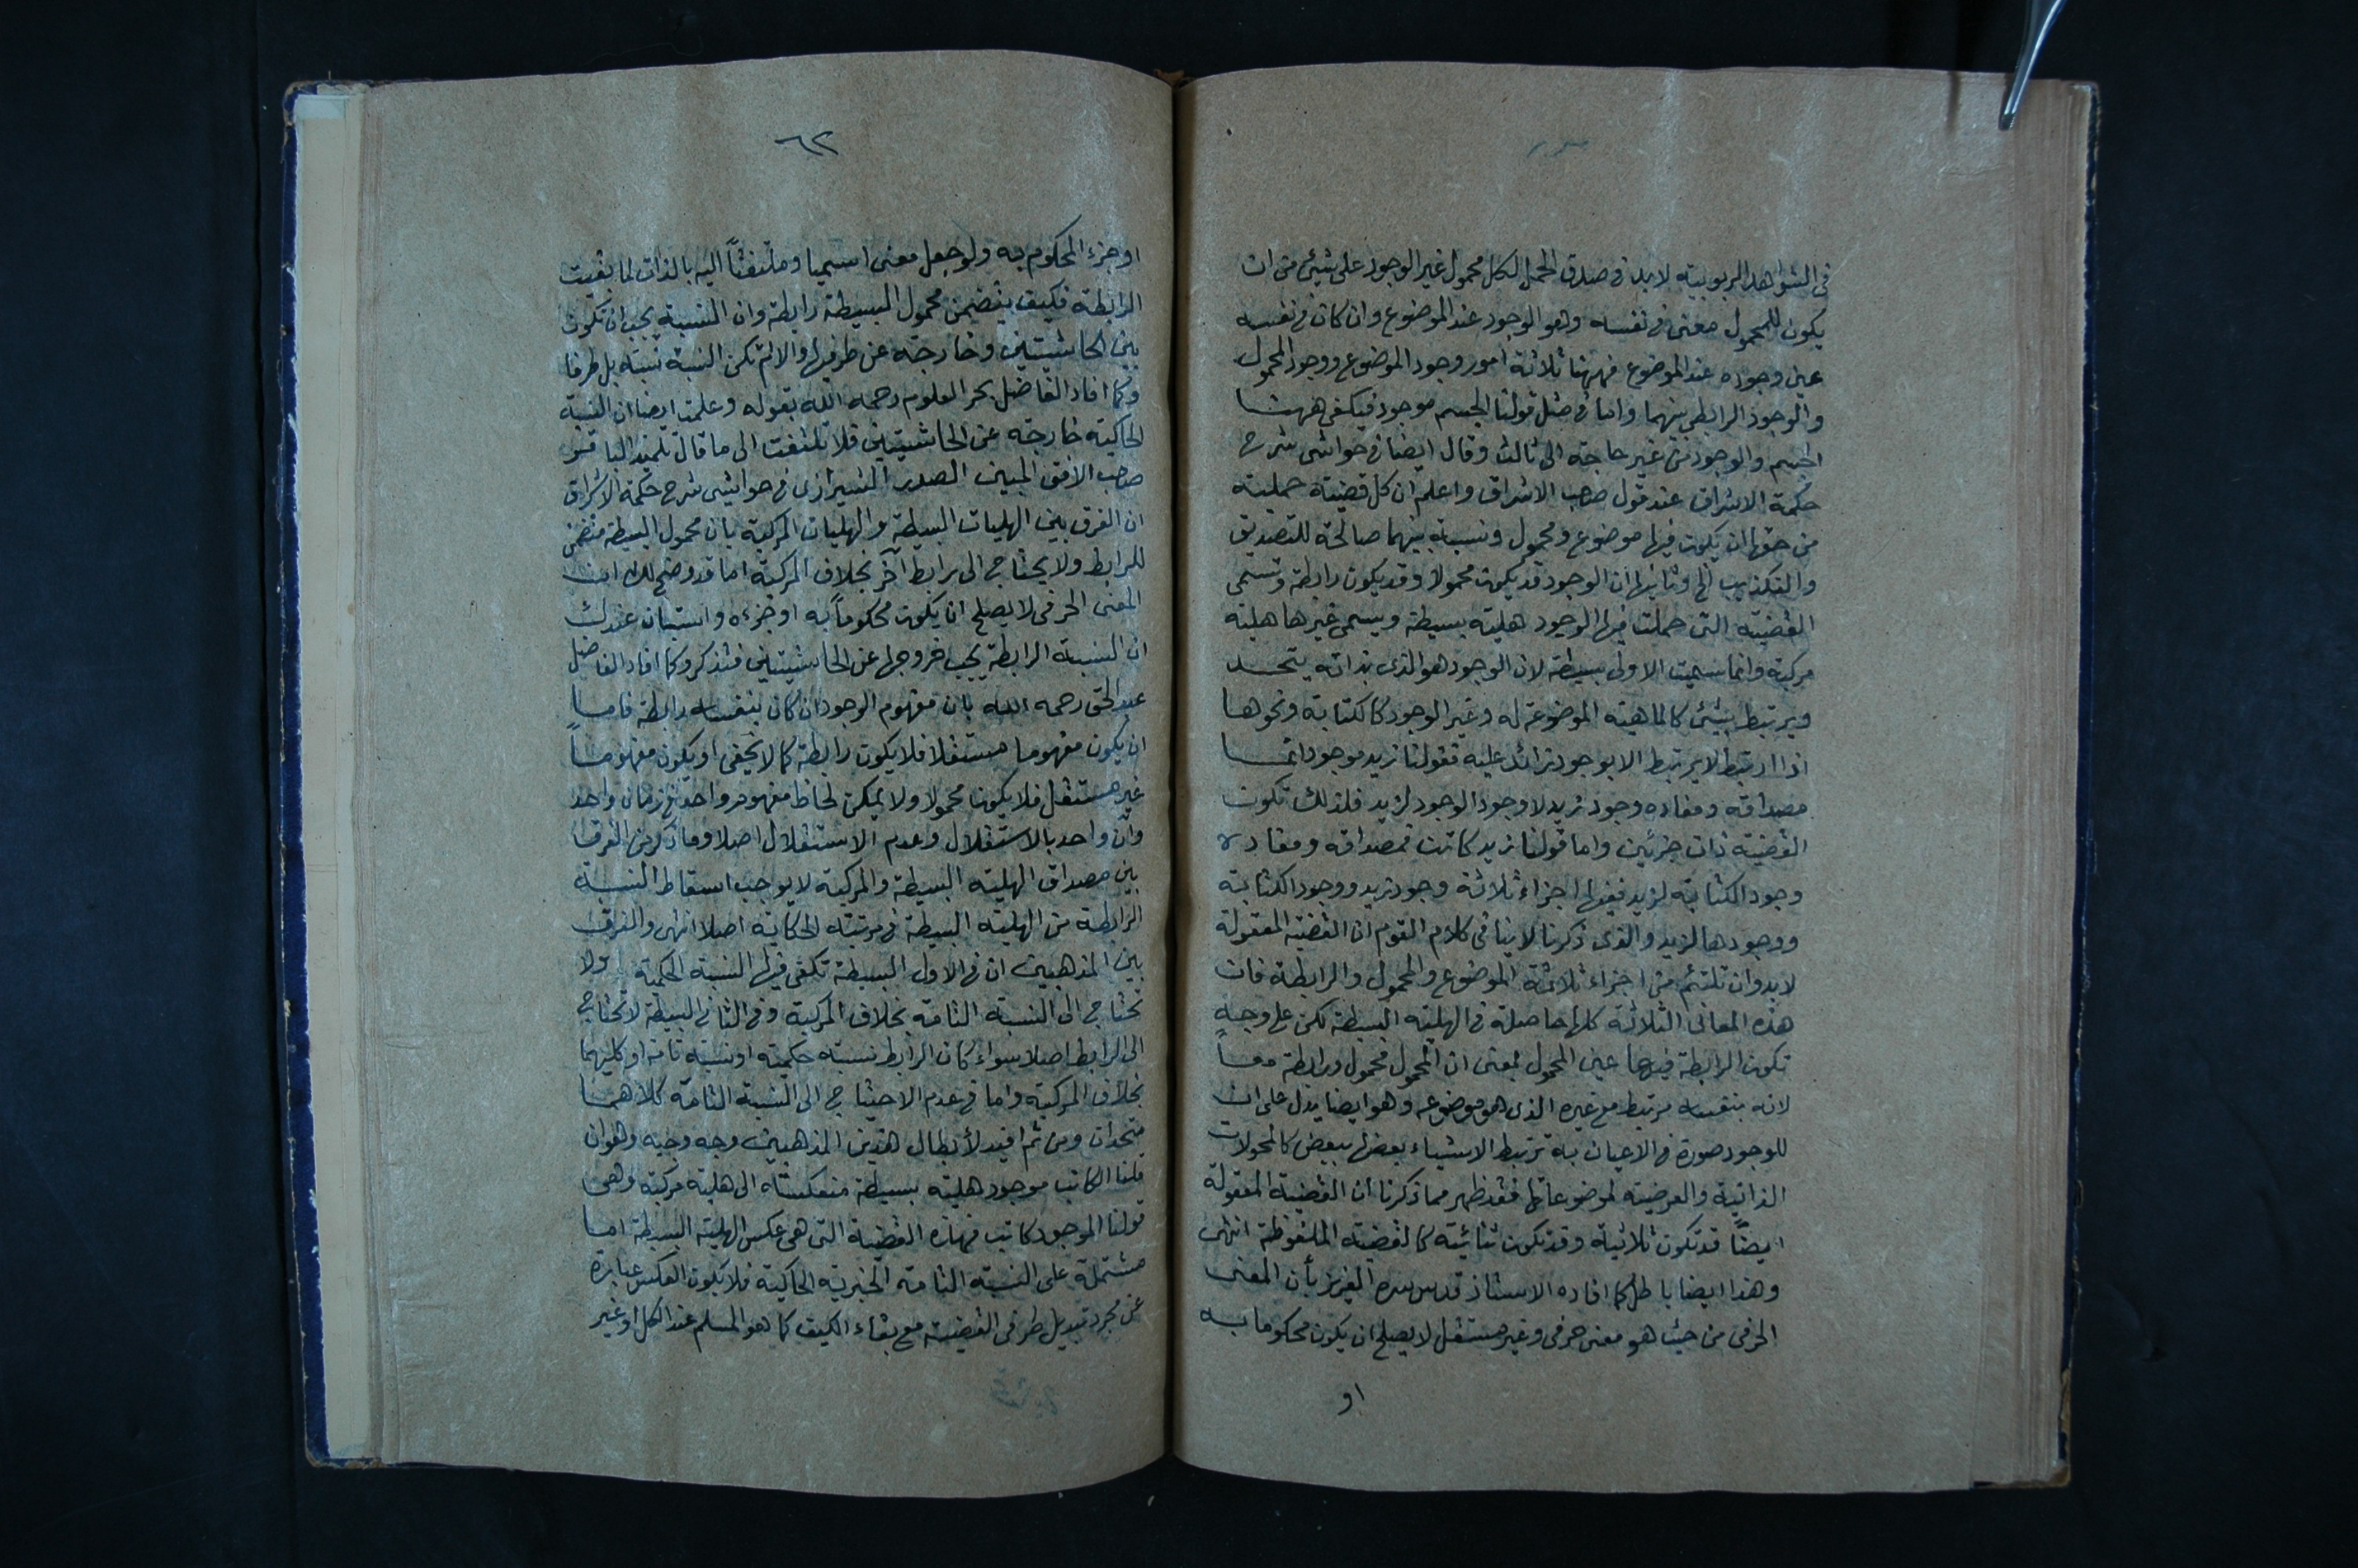 فى الشواهد الربوبية لا بد فى صدق الحمل لكل محمول غير الوجود على شيئ من ان
يكون للمحمول معنى فى نفسه وهو الوجود عند الموضوع وان كان فى نفسه
عين وجوده عند الموضوع فههنا ثلاثة امور وجود الموضوع ووجود المحمول
والوجود الرابطى بينهما واما فى مثل قولنا الجسم موجود فيكفى ههنا
الجسم والوجود من غير حاجة الى ثالث وقال ايضا فى حواشى شرح
حكمة الاشراق عند قول صاحب الاشراق واعلم ان كل قضية حملية
من حقها ان يكون فيها موضوع ومحمول ونسبة بينهما صالحة للتصديق
والتكذيب الخ وثانيها ان الوجود قد يكون محمولا وقد يكون رابطة وتسمى
القضية التى حملت فيها الوجود هلية بسيطة ويسمى غيرها هلية
مركبة وانما سميت الاولى بسيطة لان الوجود هو الذى بذاته يتحد
ويرتبط بشيئ كالماهية الموضوعة له وغير الوجود كالكتابة ونحوها
اذا ارتبط لا يرتبط الا بوجود زائد عليه فقولنا زيد موجود انما
مصداقه ومفاده وجود زيد لا وجود الوجود لزيد فلذلك تكون
القضية ذات جزئين واما قولنا زيد كاتب فمصداقه ومفاده
وجود الكتابة لزيد ففيها اجزاء ثلاثة وجود زيد ووجود الكتابة
ووجودها لزيد والذى ذكرنا لا ينافى كلام القوم ان القضية المعقولة
لا بد وان تلتئم من اجزاء ثلاثة الموضوع والمحمول والرابطة فان
هذه المعانى الثلاثة كلها حاصلة فى الهلية البسيطة لكن على وجه
تكون الرابطة فيها عين المحمول بمعنى ان المحمول محمول ورابطة معاً
لانه بنفسه مرتبط مع غيره الذى هو موضوعه وهو ايضا يدل على ان
للوجود صورة فى الاعيان به ترتبط الاشياء بعضها ببعض كالمحمولات
الذاتية والعرضية لموضوعاتها فقد ظهر مما ذكرنا ان القضية المعقولة
ايضاً قد تكون ثلاثية وقد تكون ثنائية كالقضية الملفوظة انتهى
وهذا ايضا باطل كما افاده الاستاذ قدس سره العزيز بأن المعنى
الحرفى من حيث هو معنى حرفى وغير مستقل لا يصلح ان يكون محكوما به
او
٦٢
او جزء المحكوم به ولو جعل معنى اسميا وملتفتاً اليه بالذات لما بقيت
الرابطة فكيف يتضمن محمول البسيطة رابطة وان النسبة يجب ان تكون
بين الحاشيتين وخارجة عن طرفيها والا لم تكن النسبة نسبة بل طرفا
وكما افاد الفاضل بحر العلوم رحمه الله بقوله وعلمت ايضا ان النسبة
الحاكية خارجة عن الحاشيتين فلا تلتفت الى ما قال تلميذ الباقر
صاحب الافق المبين الصدر الشيرازى فى حواشى شرح حكمة الاشراق
ان الفرق بين الهليات البسيطة والهليات المركبة بان محمول البسيطة متضمن
للرابط ولا يحتاج الى رابط آخر بخلاف المركبة اما قد وضح لك ان
المعنى الحرفى لا يصلح ان يكون محكوماً به او جزءه واستبان عندك
ان النسبة الرابطة يجب خروجها عن الحاشيتين فتذكر وكما افاد الفاضل
عبد الحق رحمه الله بان مفهوم الوجود ان كان بنفسه رابطة فاما
ان يكون مفهوما مستقلا فلا يكون رابطة كما لا يخفى او يكون مفهوماً
غير مستقل فلا يكون محمولا ولا يمكن لحاظ مفهوم واحد فى زمان واحد
وآن واحد بالاستقلال وعدم الاستقلال اصلا وما ذكر من الفرق
بين مصداق الهلية البسيطة والمركبة لا يوجب اسقاط النسبة
الرابطة من الهلية البسيطة فى مرتبة الحكاية اصلا انتهى والفرق
بين المذهبين ان فى الاول البسيطة تكفى فيها النسبة الحكمية ولا
تحتاج الى النسبة التامة بخلاف المركبة وفى الثانى البسيطة لا تحتاج
الى الرابط اصلا سواء كان الرابط نسبة حكمية او نسبة تامة او كليهما
بخلاف المركبة واما فى عدم الاحتياج الى النسبة التامة كلاهما
متحدان ومن ثم افيد لأبطال هذين المذهبين وجه وجيه وهو ان
قلنا الكاتب موجود هلية بسيطة منعكسة الى هلية مركبة وهى
قولنا الموجود كاتب فهذه القضية التى هى عكس الهلية البسيطة اما
مشتملة على النسبة التامة الخبرية الحاكية فلا يكون العكس عبارة
عن مجرد تبديل طرفى القضية مع بقاء الكيف كما هو المسلم عند الكل او غير